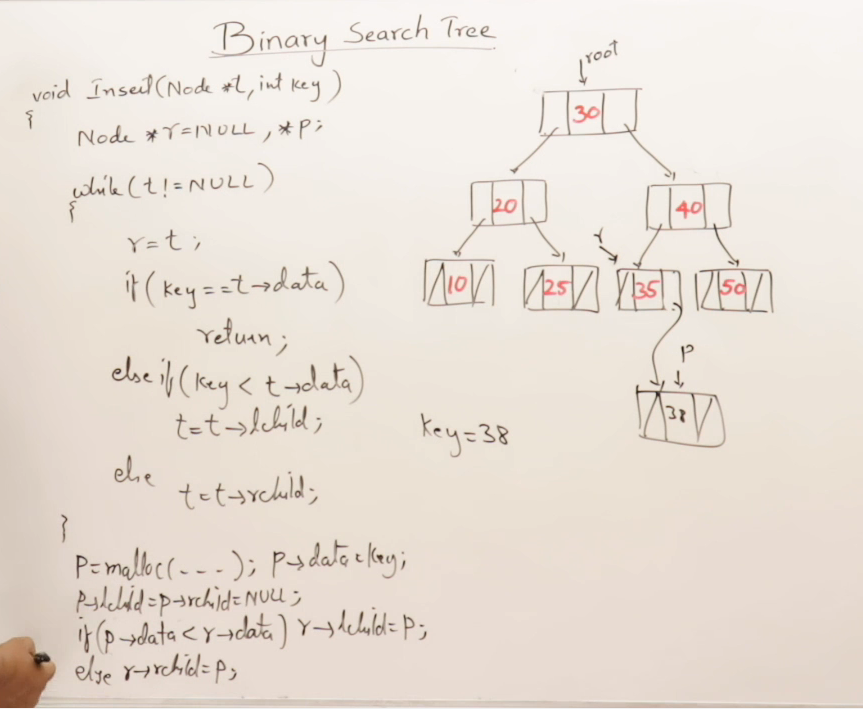 Binary Search Tree
void Insert(Node *t, int key)
{
Node *r=NULL, *p;
while(t!=NULL)
{
r=t;
if(key==t→data)
return;
else if(key < t→data)
t=t→lchild;
else
t=t→rchild;
}
P=malloc(----); p→data=key;
p→lchild=p→rchid=NULL;
if(p→data<r→data) r→lchild=p;
else r→rchild=p;
root
30
20 40
r
10 25 35 50
p
38
key=38